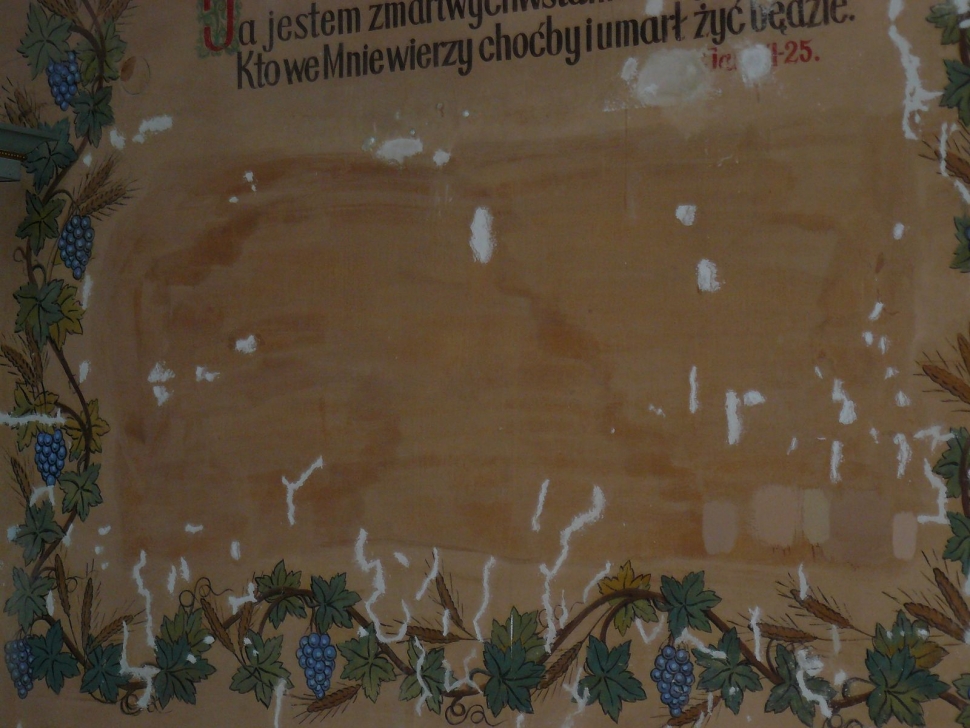 Ja jestem zmartwychwstanie
Kto we Mnie wierzy choćby i umarł żyć będzie.
-25.